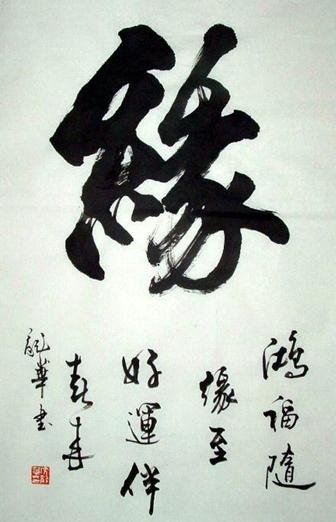 緣
鴻福隨
緣至
好運伴
龍華書